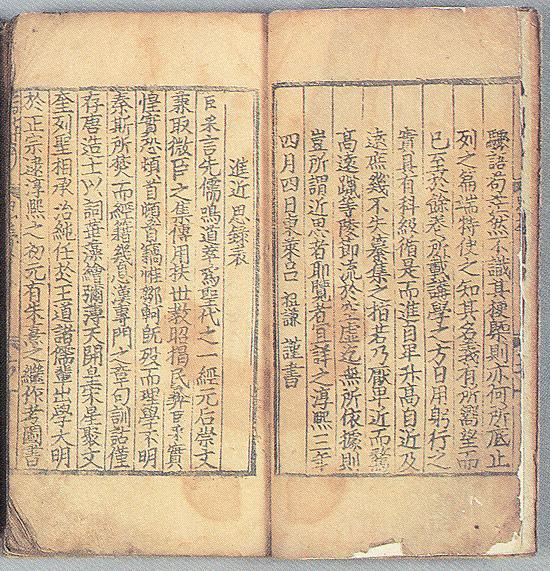 驟語苟茫然不識其梗槩則亦何所底止
列之篇端特使之知其名義有所嚮望而
已至於餘卷所載講學之方日用躬行之
實具有科級循是而進自卑升高自近及
遠庶幾不失纂集之指若乃厭卑近而騖
高遠躐等陵節流於空虛迄無所依據則
豈所謂近思者耶覽者宜詳之淳熙三年
四月四日東萊呂 祖謙 謹書
進近思録表
臣采言先儒鳴道萃爲聖代之一經元后崇文
兼取微臣之集傳用扶世敎昭揭民彛臣采實
惶實恐頓首頓首竊惟鄒軻旣歿而理學不明
秦斯所焚而經籍幾息漢專門之章句訓詁僅
存唐造士以詞章藻繪彌薄天開皇宋星聚文
奎列聖相承治純任於王道諸儒輩出學大明
於正宗逮淳熙之初元有朱熹之繼作考圖書